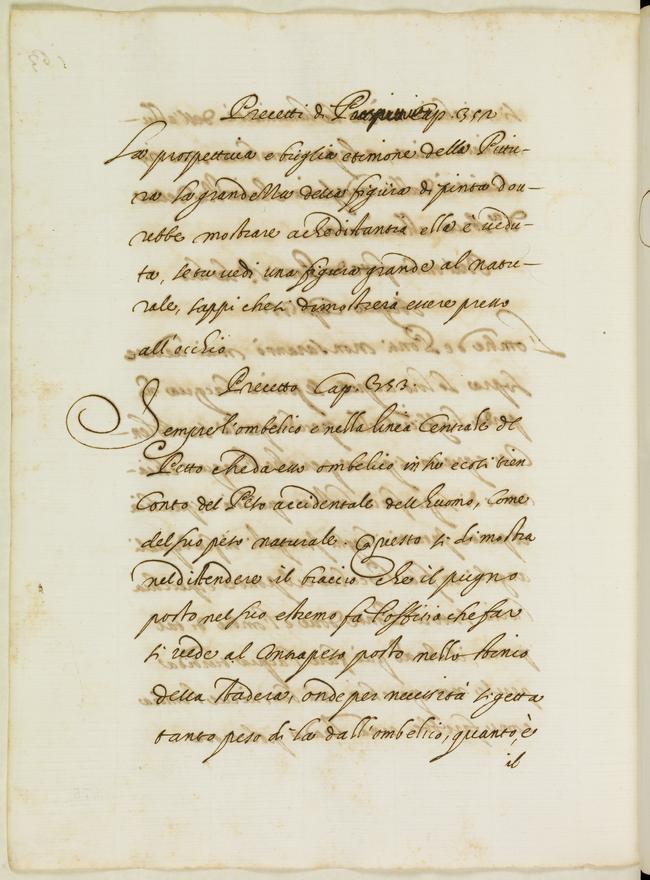 Precetti di Prospettiva Cap. 352
La prospettiua e briglia e timone della Pittu-
ra la grandezza della figura dipinta dou-
rebbe mostrare a che distantia ella e' uedu-
ta, se tu uedi una figura grande al natu-
rale, sappi che ti dimostrerà essere presso
all'occhio
Precetto Cap. 353.
Sempre l'ombelico e nella linea Centrale del
Petto che da esso ombelico in su e cosi tien
Conto del Peso accidentale dell'huomo, Come
del suo peso naturale. Questo si dimostra
nel distendere il braccio che il pugno
posto nel suo estremo fa l'offitio che far
si uede al Contrapeso posto nello stremo
della stadera, onde per necessità si getta
tanto peso di la dall'ombelico, quanto, è
il